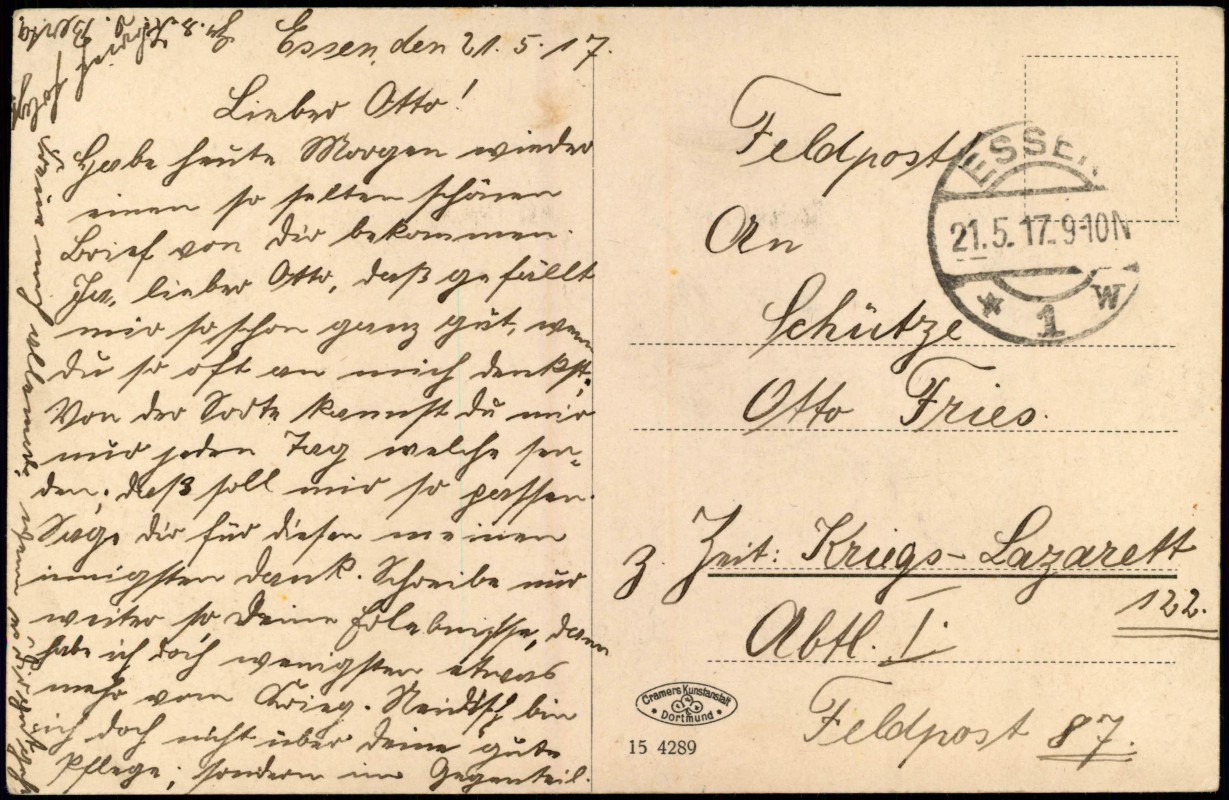 Essen, den 21.5.17.
Lieber Otto!
Habe heute Morgen wieder
einen so selten schönen
Brief von dir bekommen.
Ja, lieber Otto, daß gefällt
mir so schon ganz gut, wenn
du so oft an mich denkst.
Von der Sorte kannst du mir
nur jeden Tag welche sen-
den, daß soll mir so passen.
Sage dir für diesen meinen
innigsten Dank. Schreibe nur
weiter so Deine Erlebnisse, dann
habe ich doch wenigsten etwas
mehr vom Krieg. Neidisch bin
ich doch nicht über Deine gute
Pflege; sondern im Gegenteil.
Feldpost
An
Schütze
Otto Fries.
z. Zeit: Kriegs-Lazarett
122.
Abtl. I.
Feldpost 87.
ESSEN
21.5.17.9-10N
* 1 W
Cramers Kunstanstalt
Dortmund
15 4289